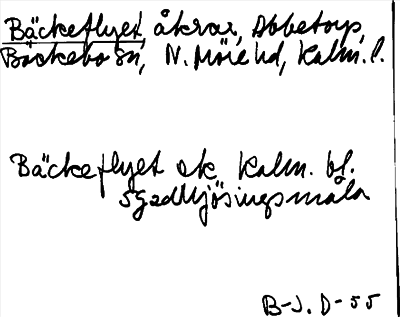 Bäckeflyet, åkrar, Abbetorp,
Bäckebo Sn, N. Möre hd, Kalm. l.
Bäckeflyet ek Kalm. bl.
5 Gadhjösingsmåla
B-J. D-55